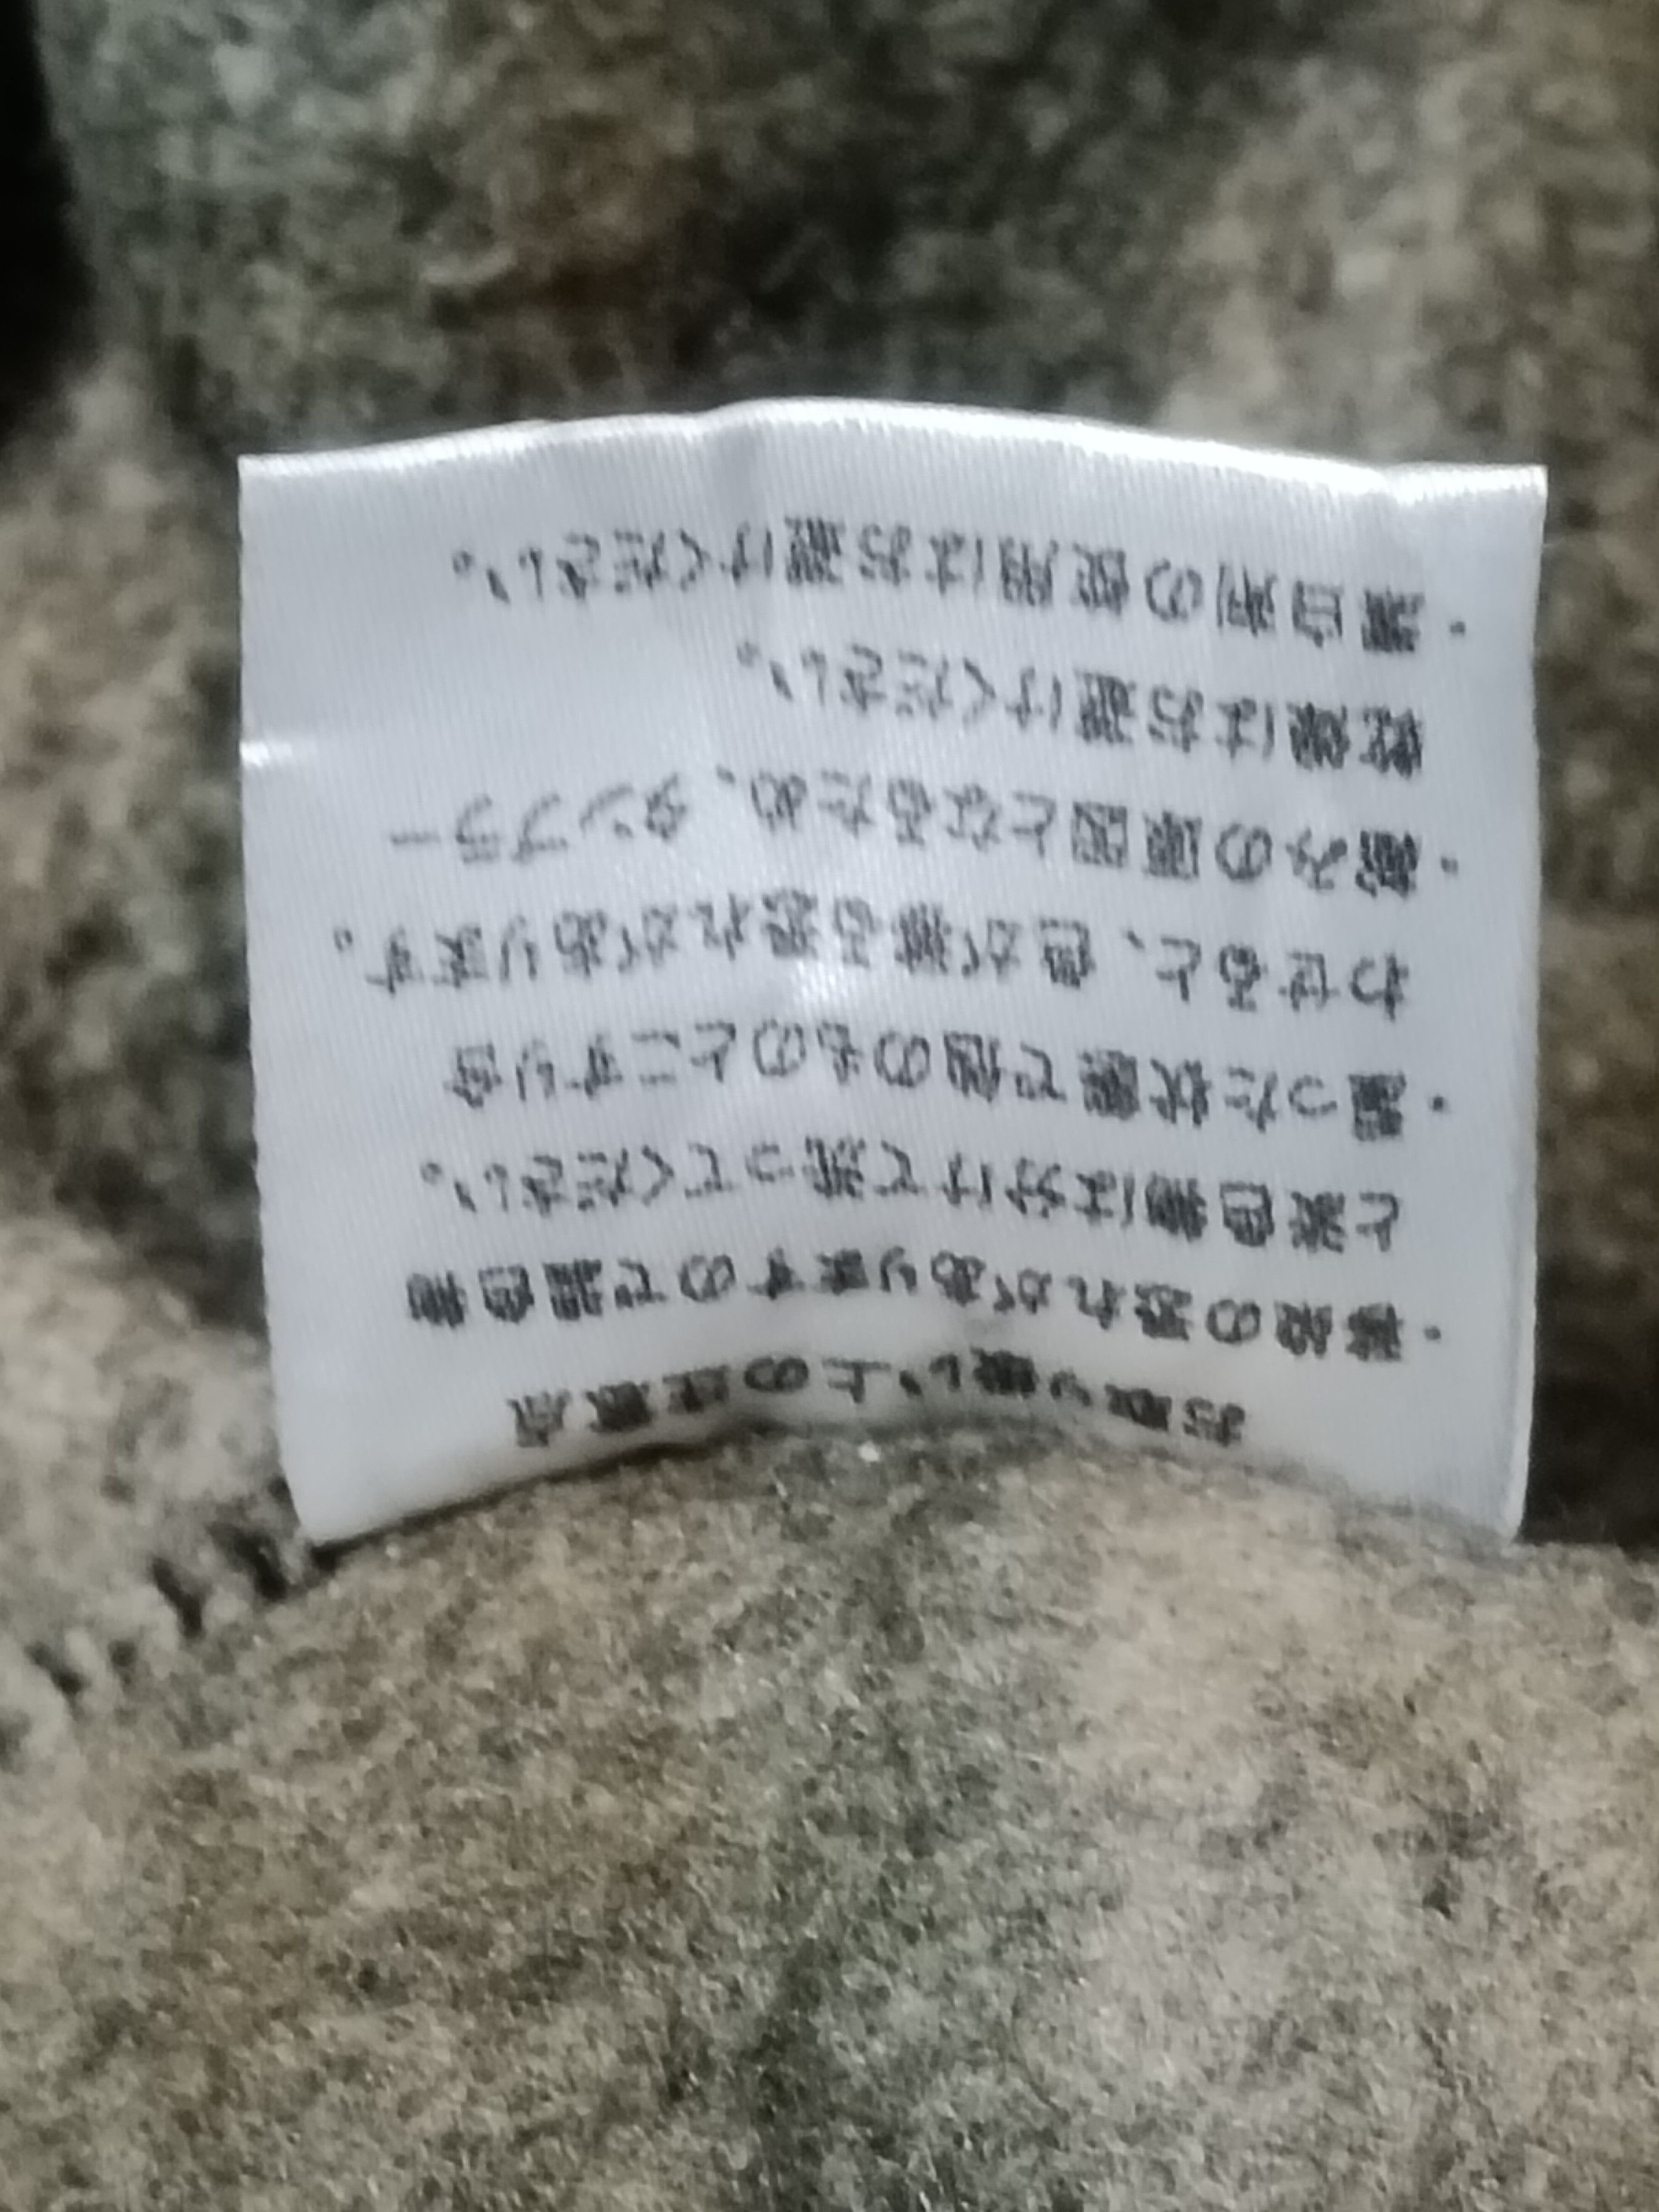 お取り扱い上の注意点
・移染の恐れがありますので濃色物
と淡色物は分けて洗ってください。
・湿った状態で他のものとこすり合
わせると、色が移る恐れがあります。
・縮みの原因となるため、タンブラー
乾燥はお避けください。
・漂白剤の使用はお避けください。